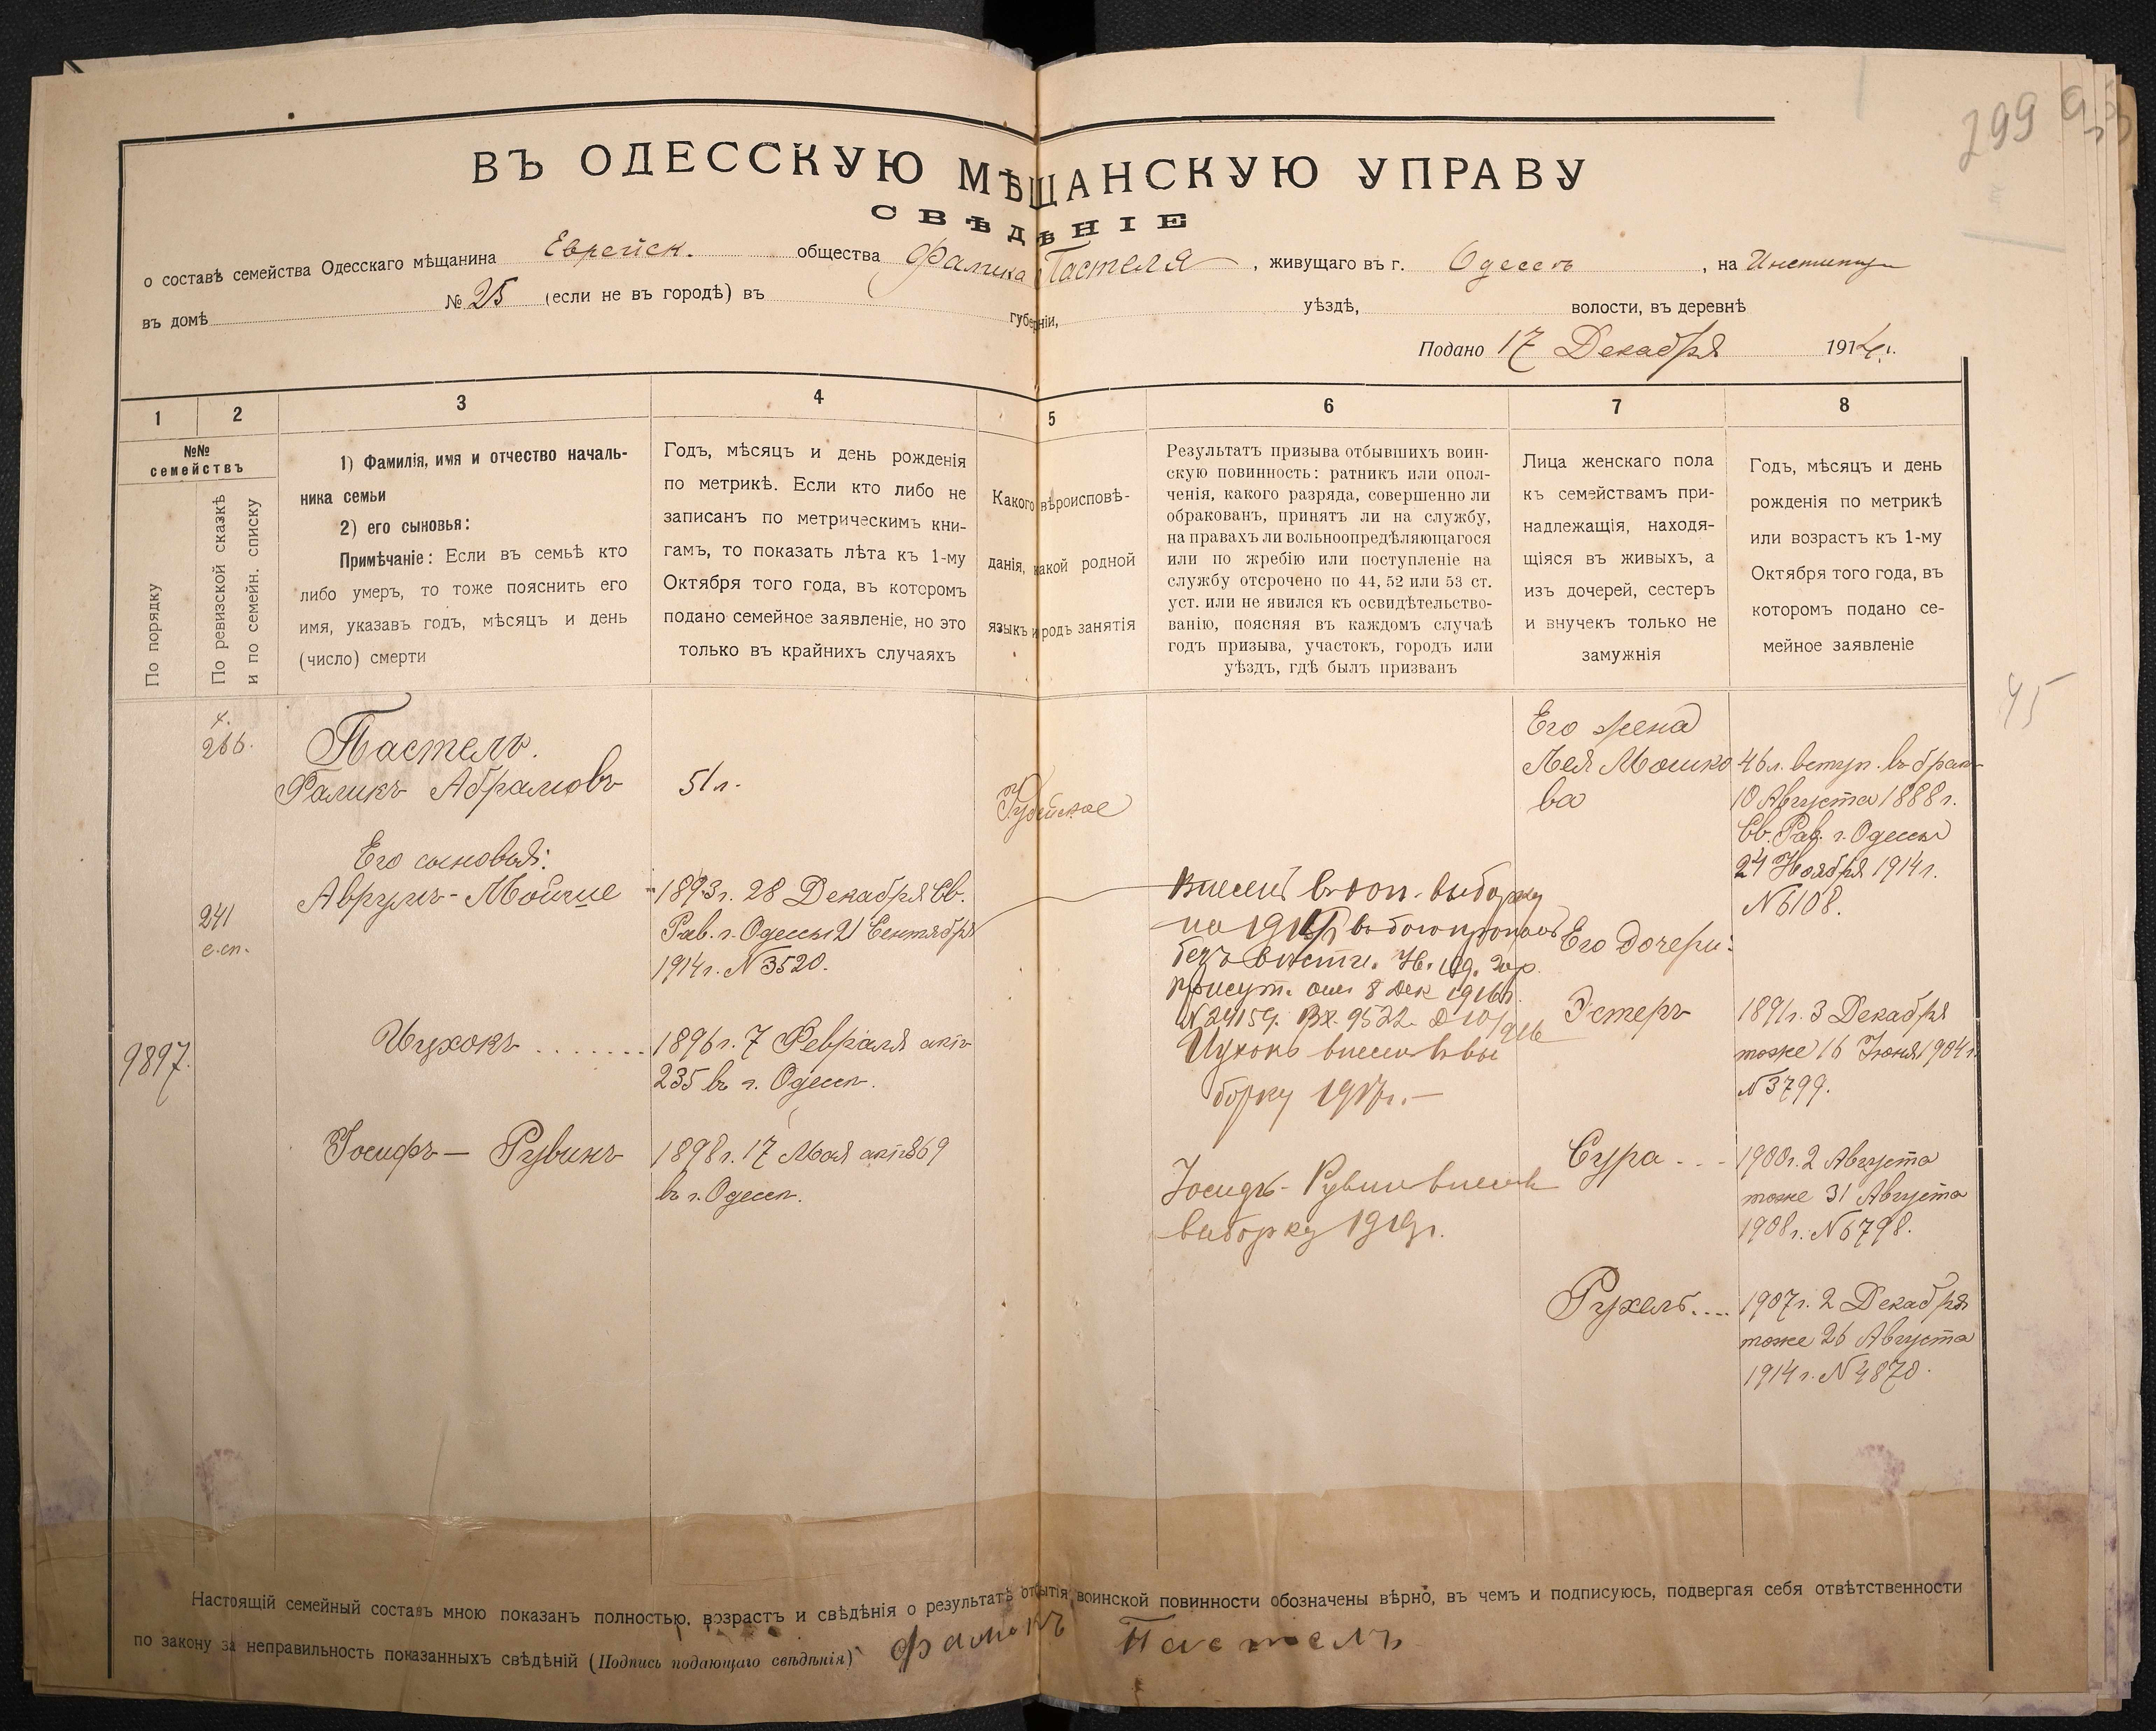 299
ВЪ ОДЕССКУЮ МѢЩАНСКУЮ УПРАВУ
СВѢДѢНІЕ
о составѣ семейства Одесскаго мѣщанина Еврейск. общества Фалика Пастеля, живущаго въ г. Одессѣ, на
въ домѣ № 25 (если не въ городѣ) въ губерніи, уѣздѣ, волости, въ деревнѣ
Подано 17 Декабря 1914 г.
1
2
3
4
5
6
7
8
№№
семействъ
По порядку
По ревизской сказкѣ
и по семейн. списку
1) Фамилія, имя и отчество началь-
ника семьи
2) его сыновья:
Примѣчаніе: Если въ семьѣ кто
либо умеръ, то тоже пояснить его
имя, указавъ годъ, мѣсяцъ и день
(число) смерти
Годъ, мѣсяцъ и день рожденія
по метрикѣ. Если кто либо не
записанъ по метрическимъ кни-
гамъ, то показать лѣта къ 1-му
Октября того года, въ которомъ
подано семейное заявленіе, но это
только въ крайнихъ случаяхъ
Какого вѣроисповѣ-
данія, какой родной
языкъ и родъ занятія
Результатъ призыва отбывшихъ воин-
скую повинность: ратникъ или опол-
ченія, какого разряда, совершенно ли
обракованъ, принятъ ли на службу,
на правахъ ли вольноопредѣляющагося
или по жребію или поступленіе на
службу отсрочено по 44, 52 или 53 ст.
уст. или не явился къ освидѣтельство-
ванію, поясняя въ каждомъ случаѣ
годъ призыва, участокъ, городъ или
уѣздъ, гдѣ былъ призванъ
Лица женскаго пола
къ семействамъ при-
надлежащія, находя-
щіяся въ живыхъ, а
изъ дочерей, сестеръ
и внучекъ только не
замужнія
Годъ, мѣсяцъ и день
рожденія по метрикѣ
или возрастъ къ 1-му
Октября того года, въ
которомъ подано се-
мейное заявленіе
45
9897.
266.
241
с.сп.
Пастель.
Фаликъ Абрамовъ
Его сыновья:
Аврумъ-Мойше
Ицхокъ .......
Іосифъ — Рувинъ
51 л.
1893 г. 28 Декабря Св.
Рав. г. Одессы 21 Сентября
1914 г. № 3520.
1896 г. 7 Февраля актъ
235 въ г. Одессѣ.
1898 г. 17 Мая актъ 869
въ г. Одессѣ.
Іудейское
Внесенъ въ доп. выборку
на въ бою пропалъ
безъ вѣсти. гор.
присут. отъ 8 Дек 1916 г.
№ 24159. Вх. 9522
Ицхокъ внесенъ въ вы
борку 1917 г. —
Іосифъ-Рувинъ внесенъ
выборку 1919 г.
Его жена
Лея Мошко
ва
Его дочери:
Эстеръ
Сура ...
Рухель ....
46 л. вступ. въ бракъ
10 Августа 1888 г.
Св. Рав. г. Одессы
24 Ноября 1914 г.
№ 6108.
1891 г. 3 Декабря
тоже 16 Іюня 1904 г.
№ 3799.
1900 г. 2 Августа
тоже 31 Августа
1908 г. № 6798.
1907 г. 2 Декабря
тоже 26 Августа
1914 г. № 4870.
Настоящій семейный составъ мною показанъ полностью, возрастъ и свѣдѣнія о результатѣ отбытія воинской повинности обозначены вѣрно, въ чемъ и подписуюсь, подвергая себя отвѣтственности
по закону за неправильность показанныхъ свѣдѣній (Подпись подающаго свѣдѣнія) Фаликъ Пастель